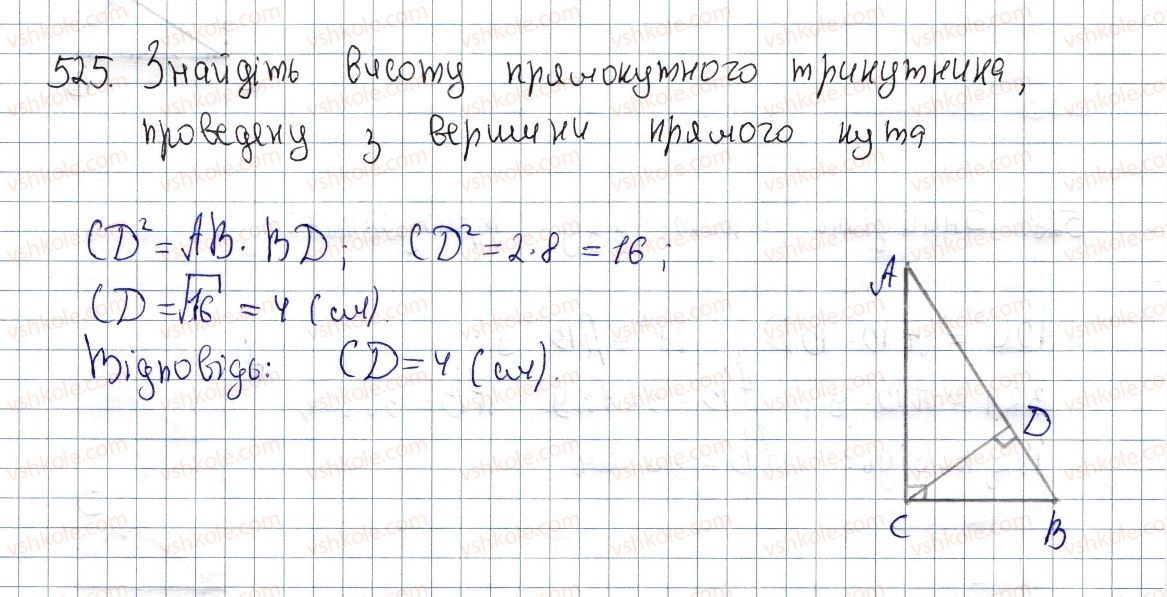 525. Знайдіть висоту прямокутного трикутника,
проведену з вершини прямого кута
CD² = AB · BD; CD² = 2·8 = 16;
CD = √16 = 4 (см).
Відповідь: CD = 4 (см).
A
D
C
B